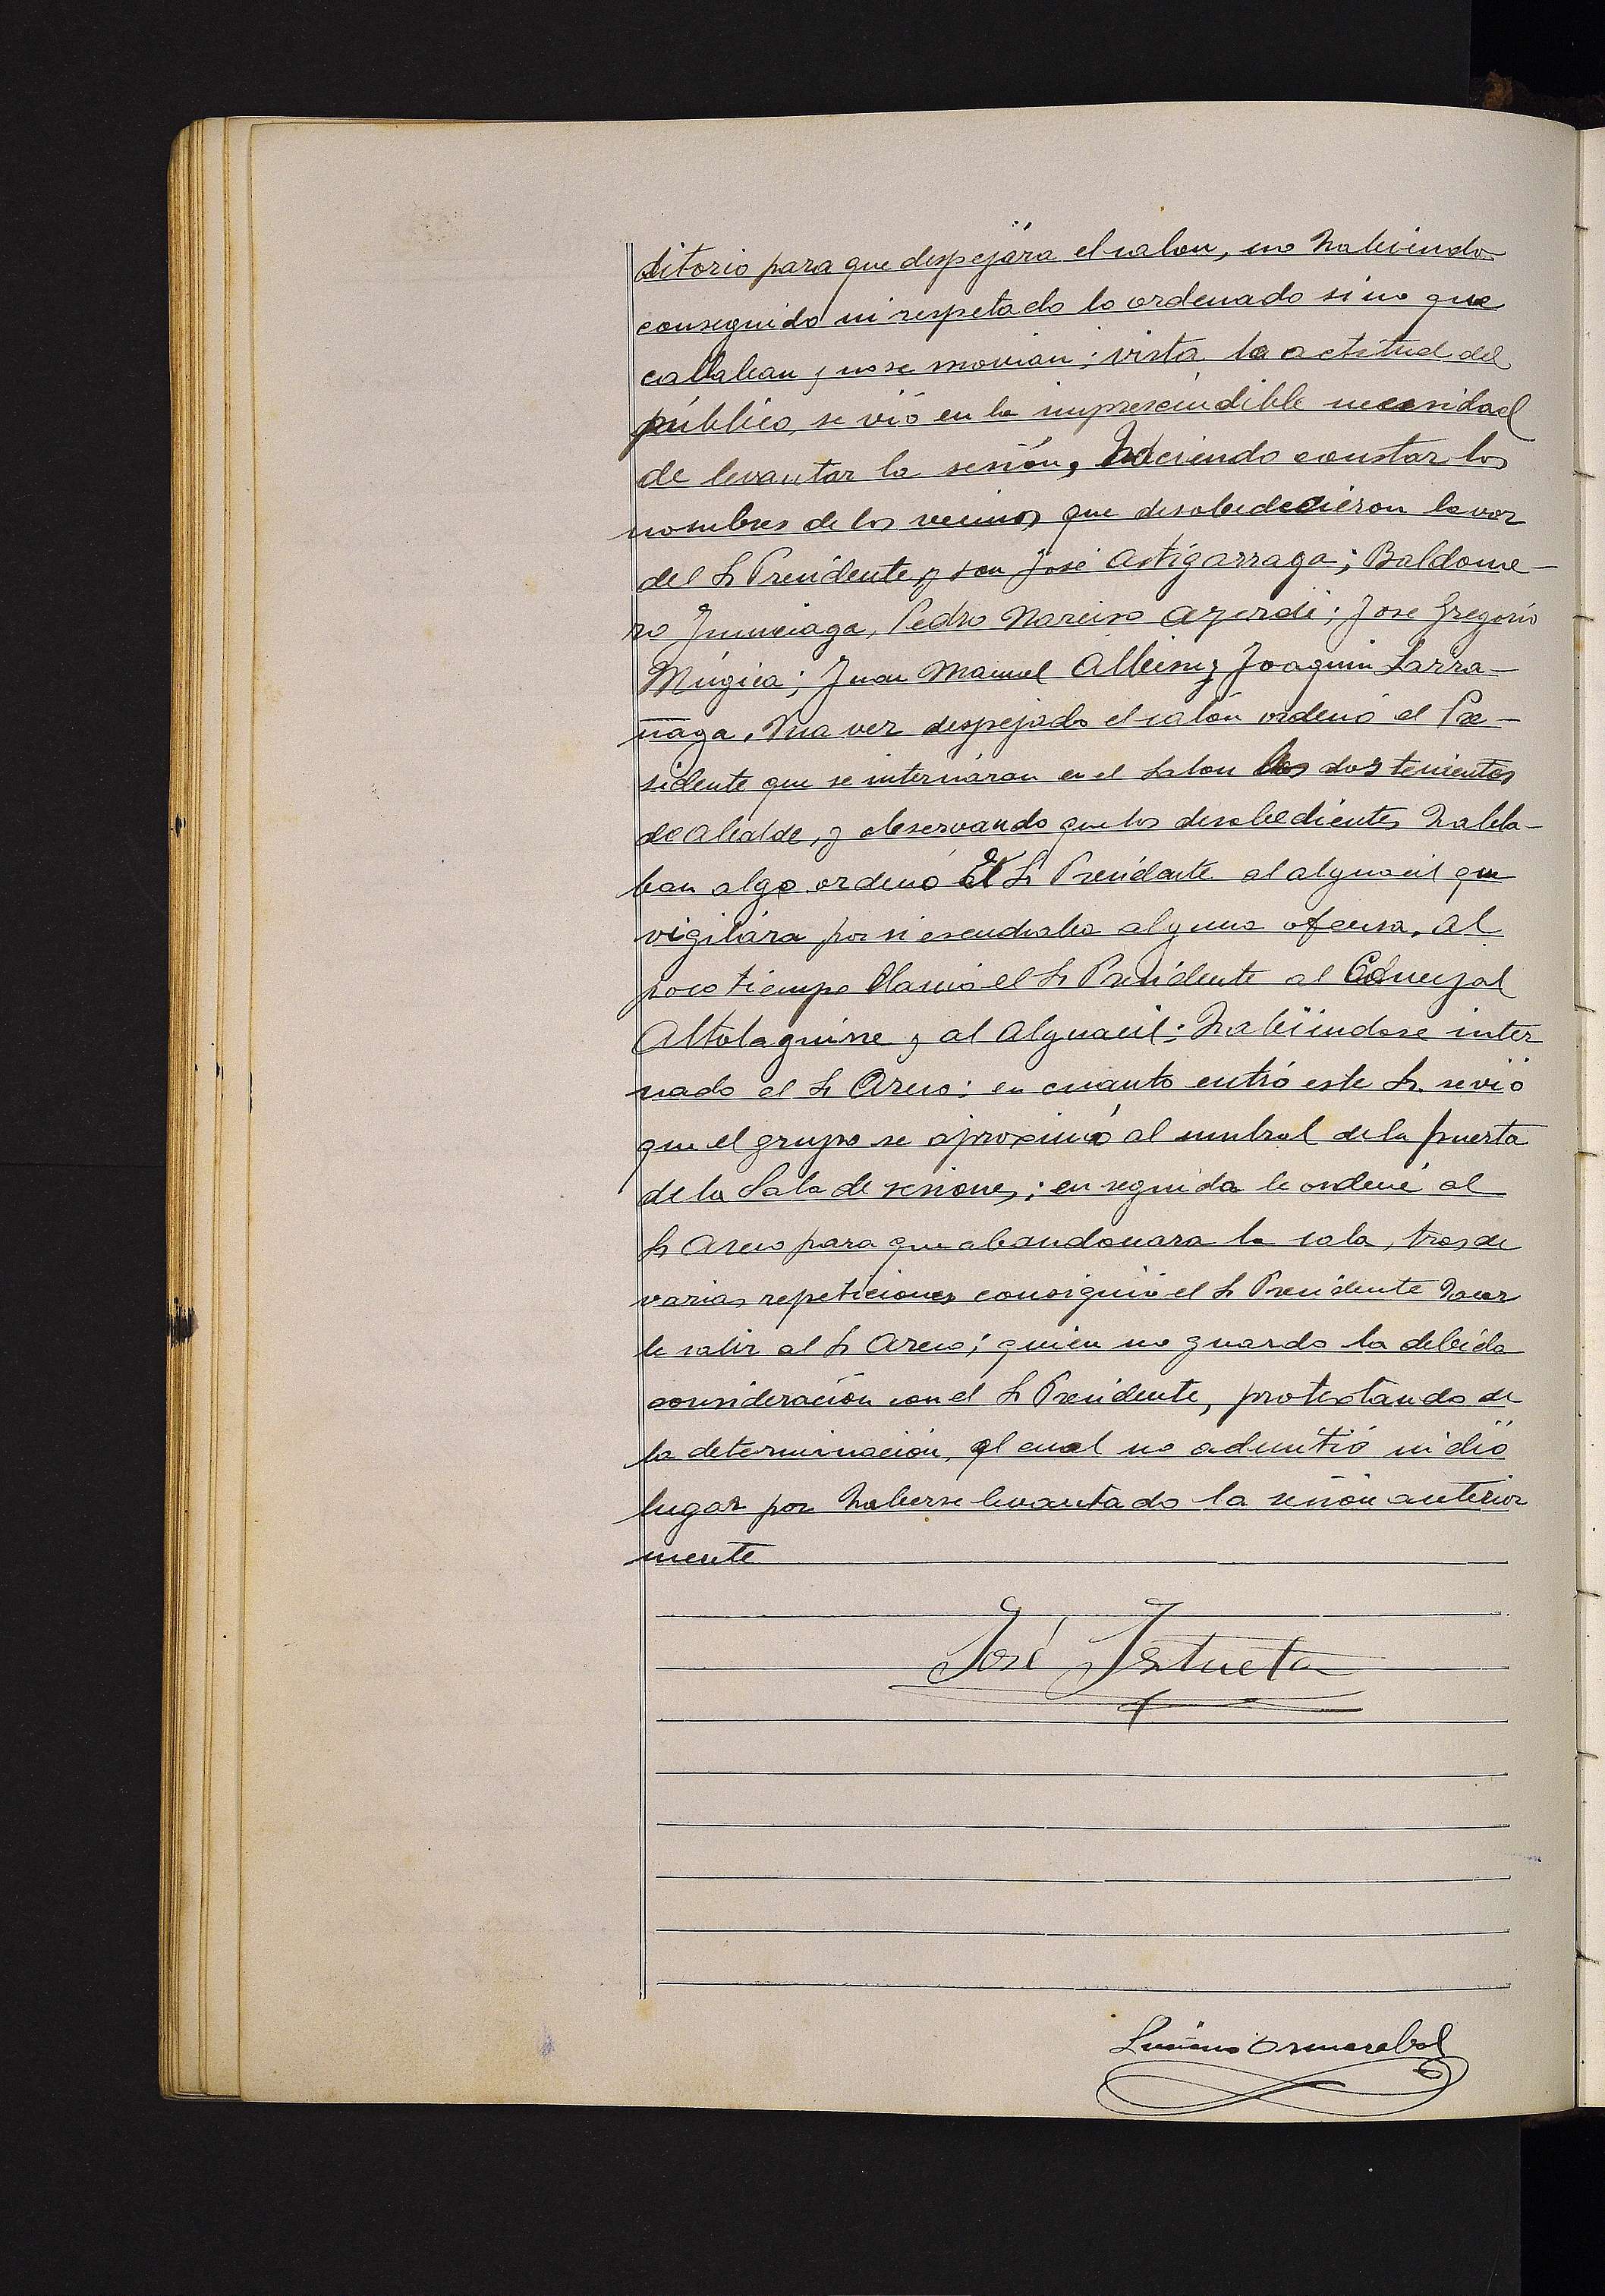 ditorio para que despejára el salon, no habiendo
conseguido ni respetado lo ordenado sino que
callaban y no se movian; vista la actitud del
público, se vió en la imprescindible necesidad
de levantar la sesión, haciendo constar los
nombres de los vecinos que desobedecieron la voz
del Sr Presidente y son José Astigarraga; Baldome-
ro Junciaga, Pedro Narciso Azcrdi; Jose Gregorio
Múgica; Juan Manuel Albisu y Joaquin Larra-
ñaga. Una vez despejado el salón ordenó el Pre-
sidente que se internáran en el salon los dos tenientes
de alcalde, y observando que los desobedientes habla-
ban algo ordenó el Sr Presidente al alguacil que
vigilára por si escuchaba alguna ofensa. Al
poco tiempo llamó el Sr Presidente al Concejal
Altolaguirre y al Alguacil; habiindose inter
nado el Sr Areso: en cuanto entró este Sr. se vió
que el grupo se aproximó al umbral de la puerta
de la Sala de sesiones; en seguida le ordené al
Sr Areso para que abandonara la sala, tras de
varias repeticiones consiguió el Sr Presidente hacer
le salir al Sr Areso; quien no guardo la debida
consideración con el Sr Presidente, protestando de
la determinación, el cual no admitió ni dió
lugar por haberse levantado la sesión anterior
mente
José Istueta
Ormazabal